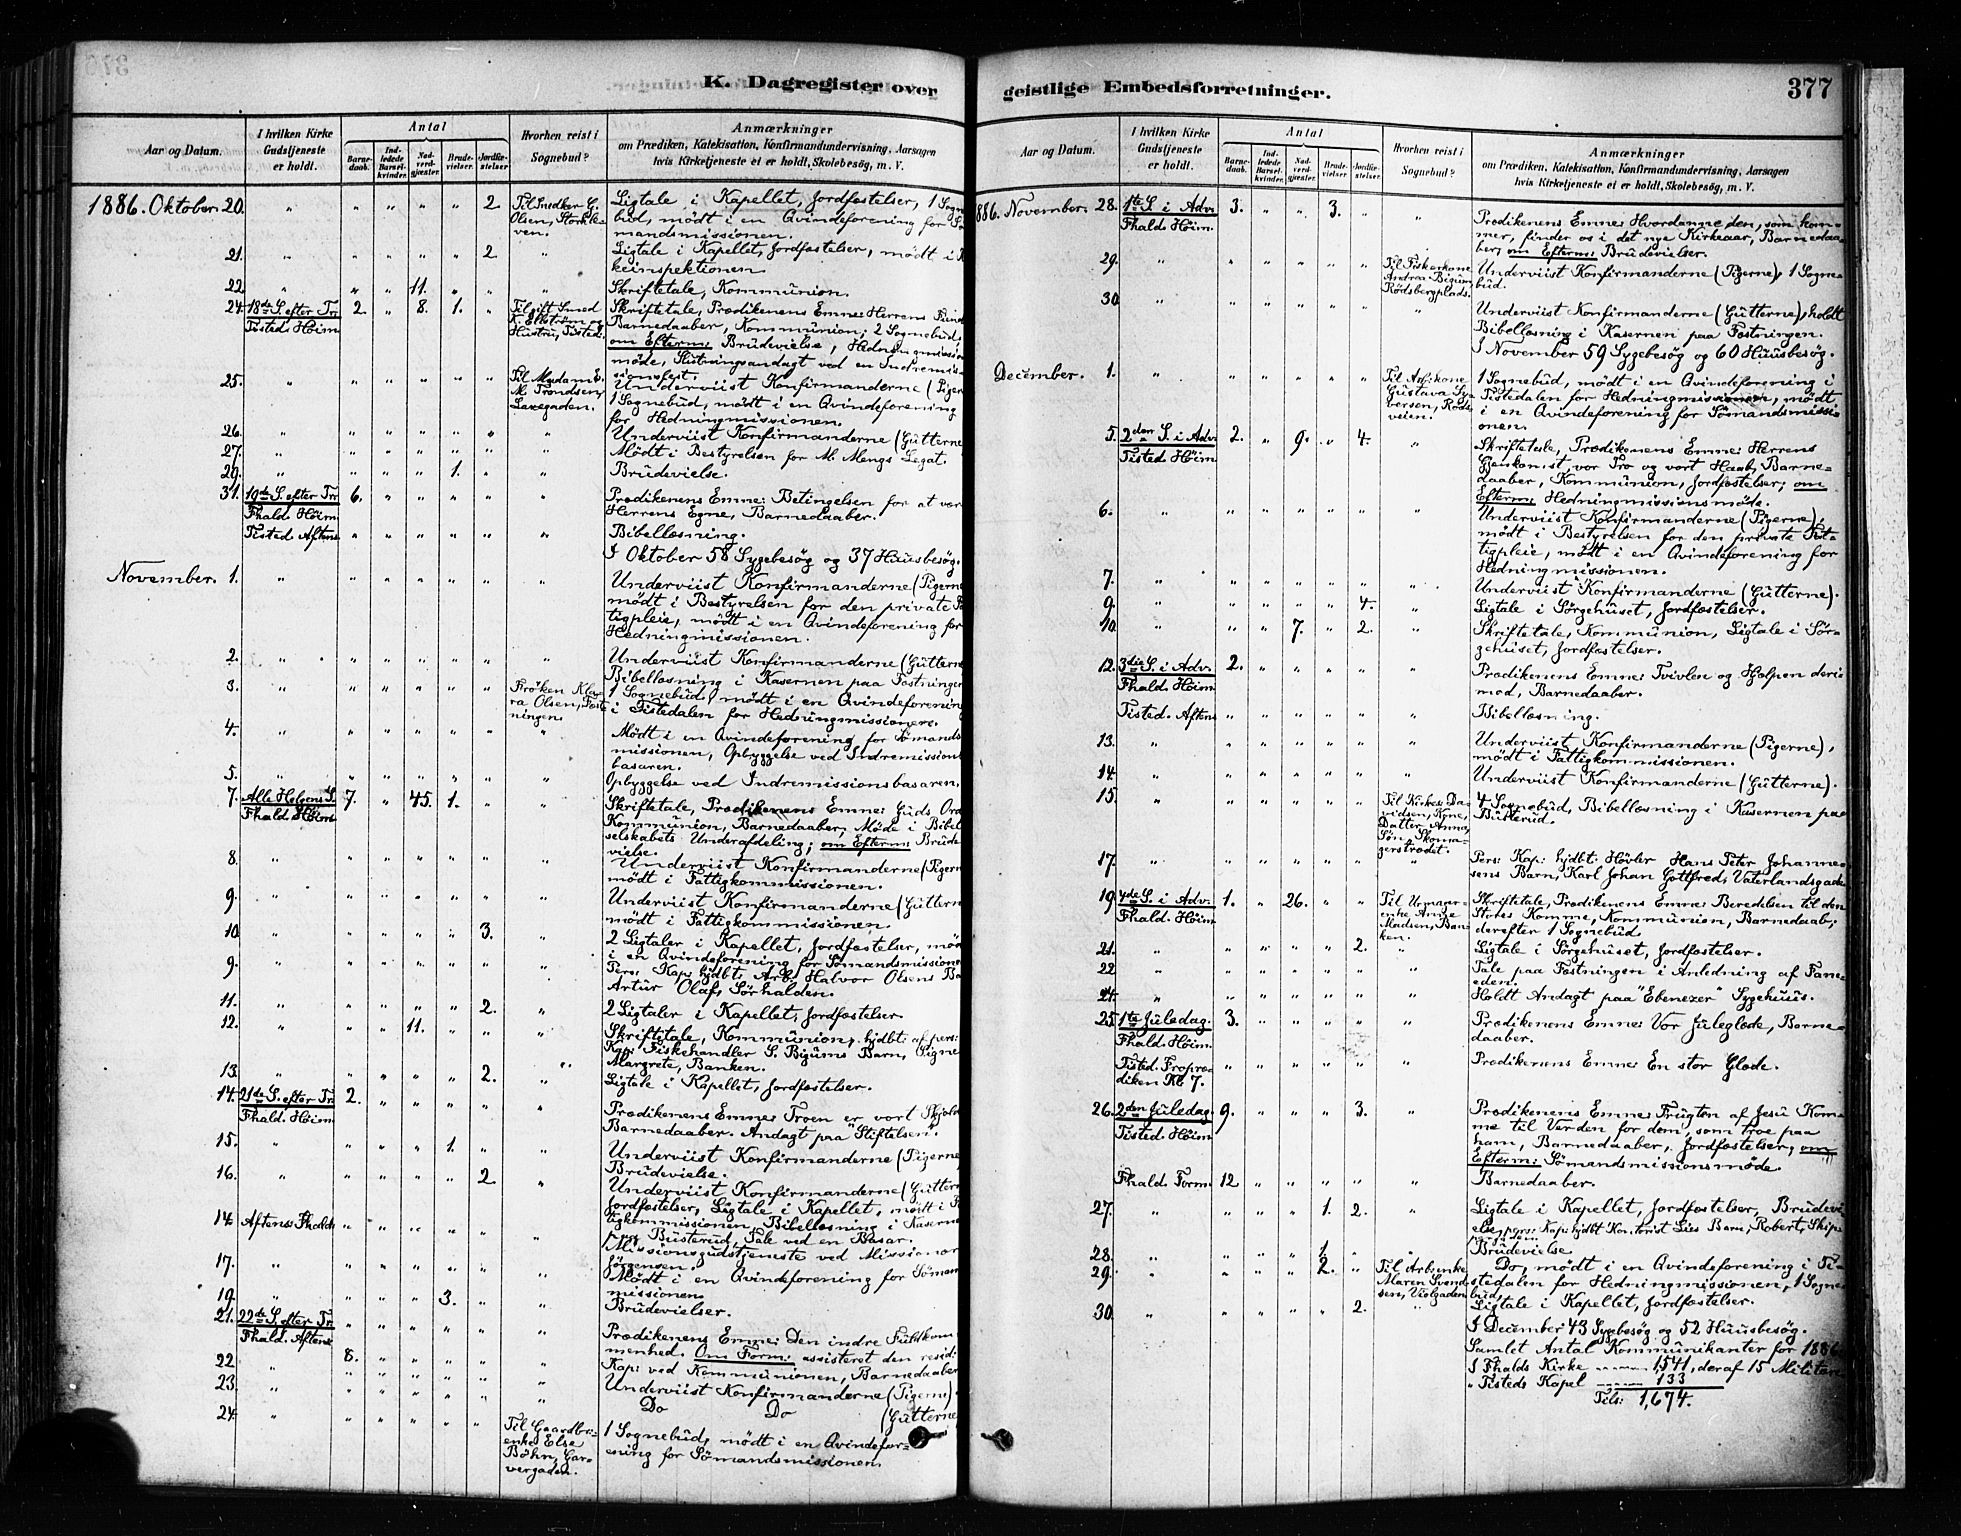 K. Dagregister over
Aar og Datum.
I hvilken Kirke Gudstjeneste er holdt.
Antal
Barnedaab.
Indledede Barselkvinder.
Nadverdgjæster.
Brudevielser.
Jordfæstelser.
Hvorhen reist i Sognebud?
Anmærkninger
om Prædiken, Katekisation, Konfirmandundervisning, Aarsagen
hvis Kirketjeneste ei er holdt, Skolebesøg, m. V.
1886. Oktober. 20. " " " " " 2 Til Snedker G. Olsen, Ligtale i Kapellet, Jordfæstelser, 1 Sogne
bud, mödt i en Qvindeforening for Sö
mandsmissionen.
21. " " " " " 2 " Ligtale i Kapellet, Jordfæstelser, mödt i
keinspektionen.
22 " " " 11. " " " Skriftetale, Kommünion.
24. 18de S. efter Tr. Tisted. Höim. 2. " 8. 1. " Til gift Smed K. Ekström og Hustru, Tisted. Skriftetale, Prædikenens Emne: Herrens
Barnedaaber, Kommünion; 2 Sognebud,
om Efterm: Brüdevielse, Hedningmissions
möde, Slutningsandagt ved en Indremis-
sionsfest.
25. " " " " " " Til Madam E. M. Trondsen, Underviist Konfirmanderne (Piger
1 Sognebud, mödt i en Qvindeforening
for Hedningmissionen.
26. " " " " " " " Underviist Konfirmanderne (Gütterne
27. " " " " " " " Mödt i Bestyrelsen for M. Mengs Legat.
29. " " " " 1. " " Brüdevielse.
31. 19de S. efter Tr. Fhald. Höim. 6. " " " " " Prædikenens Emne: Betingelsen for at være
Herrens Egne, Barnedaaber.
Tisted. Aftens " " " " " " Bibellæsning.
I Oktober 58 Sygebesög og 37 Huusbesög.
November. 1. " " " " " " " Underviist Konfirmanderne (Pigerne
mödt i Bestyrelsen for den private
tigpleie, mödt i en Qvindeforening for
Hedningmissionen.
2. " " " " " " " Underviist Konfirmanderne (Gütterne
Bibellæsning i Kasernen paa Fæstningen
3. " " " " " " Fröken Klara Olsen, Fæstningen. 1 Sognebud, mödt i en Qvindeforening
i Tistedalen for Hedningmissionen.
4. " " " " " " " Mödt i en Qvindeforening for Sömands
missionen, Opbyggelse ved Indremission
basaren.
5. " " " " " " " Opbyggelse ved Indremissionsbasaren.
7. Alle Helgens S. Fhald. Höim. 7. " 45. 1. " " Skriftetale, Prædikenens Emne: Guds Ord
Kommünion, Barnedaaber, Möde i Bibel
selskabets Underafdeling; om Efterm: Brüde
vielse.
8. " " " " " " " Underviist Konfirmanderne (Pigern
mödt i Fattigkommissionen.
9. " " " " " " " Underviist Konfirmanderne (Güttern
mödt i Fattigkommissionen.
10. " " " " " 3. " 2 Ligtaler i Kapellet, Jordfæstelser, mödt
i en Qvindeforening for Sömandsmissione
9. " " " " " " " Pers: Kap: hjdbt: Arb. Halvor Olsens Ba
Artur Olaf, Sörhalden.
11. " " " " " 2. " 2 Ligtaler i Kapellet, Jordfæstelser
12. " " " 11. " " " Skriftetale, Kommünion, hjdbt: af pers:
Kap: Fiskehandler S. Bigüms Barn, Signe
Margrete, Banken.
13. " " " " " 2. " Ligtale i Kapellet, Jordfæstelser.
14. 21de S. efter Tr. Fhald. Höim. 2. " " " " " Prædikenens Emne: Troen er vort Skjold
Barnedaaber. Andagt paa "Stiftelsen".
15. " " " " 1. " " Underviist Konfirmanderne (Pigerne,
Brüdevielse.
16. " " " " " 2 " Underviist Konfirmanderne (Güttern
Jordfæstelser, Ligtale i Kapellet, mödt i
tigkommissionen, Bibellæsning i Kaserne
paa Büsterud, Tale ved en Basar.
14. Aftens Fhalds " " " " " " Missionsgudstjeneste ved Missionær
Jörgensen.
17. " " " " " " " Mödt i en Qvindeforening for Söman
missionen
19. " " " " 3. " " Brüdevielser.
21. 22de S. efter Tr. Fhald. Aftens " " " " " " Prædikenens Emne: Den indre Fuldkom
menhed. Om Form: assisteret den resid:
Kap: ved Kommünionen, Barnedaaber
22 " 8. " " " " " Underviist Konfirmanderne (Pigerne).
23. " " " " " " " Do Do (Gütterne
24. " " " " " " Til Gaardbr: enke Else Böhn, Garvergaden. 1 Sognebud, mödt i en Qvindefor-
ening for Sömandsmissionen.
geistlige Embedsforretninger.
377
Aar og Datum.
I hvilken Kirke Gudstjeneste er holdt.
Antal
Barnedaab.
Indledede Barselkvinder.
Nadverdgjæster.
Brudevielser.
Jordfæstelser.
Hvorhen reist i Sognebud?
Anmærkninger
om Prædiken, Katekisation, Konfirmandundervisning, Aarsagen
hvis Kirketjeneste ei er holdt, Skolebesøg, m. V.
886. November. 28. 1ste S. i Adv. Fhald. Höim. 3. " " 3. " " Prædikenens Emne: Hvordanne den, som kom-
mer, finder os i det nye Kirkeaar, Barnedaa-
ber, om Efterm: Brüdevielser.
29. " " " " " " Til Fiskerkone Andrea Bigüm, Rödsbergplads. Underviist Konfirmanderne (Pigerne), 1 Sogne-
bud.
30. " " " " " " " Underviist Konfirmanderne (Gütterne), holdt
Bibellæsning i Kasernen paa Fæstningen.
I November 59 Sygebesög og 60 Huusbesög.
December. 1. " " " " " " Til Arb.kone Gustava Sybersen, Rödsveien. 1 Sognebud, mödt i en Qvindeforening i
Tistedalen for Hedningmissionen, mödt
i en Qvindeforening for Sömandsmissi-
onen.
5. 2den S. i Adv. Tisted. Höim. 2. " 9. " 4. " Skriftetale, Prædikenens Emne: Herrens
Gjenkomst, vor Tro og vort Haab, Barne-
daaber, Kommünion, Jordfæstelser; om
Efterm: Hedningmissionsmöde.
6. " " " " " " " Underviist Konfirmanderne (Pigerne),
mödt i Bestyrelsen for den private Fat-
tigpleie, mödt i en Qvindeforening for
Hedningmissionen.
7. " " " " " " " Underviist Konfirmanderne (Gütterne).
9. " " " " " 4. " Ligtale i Sörgehüset, Jordfæstelser.
10. " " " 7. " 2. " Skriftetale, Kommünion, Ligtale i Sör-
gehüset, Jordfæstelser.
12. 3die S. i Adv. Fhald. Höim. 2. " " " " " Prædikenens Emne: Tvivlen og Hjælpen deri-
mod, Barnedaaber.
Tisted. Aftens " " " " " " Bibellæsning.
13. " " " " " " " Underviist Konfirmanderne (Pigerne),
mödt i Fattigkommissionen.
14. " " " " " " " Underviist Konfirmanderne (Gütterne).
15. " " " " " " Til Kirkes: Davidsen, Kone, Datter Anna, Sön, Skomagerstrædet. 4 Sognebud, Bibellæsning i Kasernen paa
Büsterud.
17. " " " " " " " Pers: Kap: hjdbt: Hövler Hans Peter Johanne-
sens Barn, Karl Johan Gottfred, Vaterlandsgade
19. 4de S. i Adv. Fhald. Höim. 1. " 26. " " Til Urmagerenke Anne Madsen, Banken. Skriftetale, Prædikenens Emne: Beredelsen til den
Störes Komme, Kommünion, Barnedaab;
derefter 1 Sognebud.
21. " " " " " 2. " Ligtale i Sörgehüset, Jordfæstelser.
22 " " " " " " " Tale paa Fæstningen i Anledning af Fane-
eden.
24. " " " " " " " Holdt Andagt paa "Ebenezer" Sygehuus.
25. 1ste Juledag. Fhald. Höim. 3. " " " " " Prædikenens Emne: Vor Juleglæde, Barne-
daaber.
Tisted. Froprædiken Kl. 7. " " " " " " Prædikenens Emne: En stor Glæde.
26. 2den Juledag. Tisted. Höim. 9. " " " 3. " Prædikenens Emne: Frugten af Jesu Kom-
me til Verden for dem, som troe paa
ham, Barnedaaber, Jordfæstelser, om
Efterm: Sömandsmissionsmöde.
Fhald. Form: 12 " " " " " Barnedaaber.
27. " " " " 1. 2. " Ligtale i Kapellet, Jordfæstelser, Brüdevi-
else, pers: Kap: hjdbt Kontorist Lies Barn, Robert,
28. " " " " 1. " " Brüdevielse
29. " " " " 2. " Til Arb:enke Maren Svendsen, Violgaden Do, mödt i en Qvindeforening i Ti-
stedalen for Hedningmissionen, 1 Sogne-
bud.
30. " " " " " 2. " Ligtale i Kapellet, Jordfæstelser.
I December 43 Sygebesög og 52 Huusbesög.
Samlet Antal Kommunikanter for 1886
I Fhalds Kirke ---- 1541, deraf 15 Militære
" Tisteds Kapel ---- 133
Tils: 1,674.